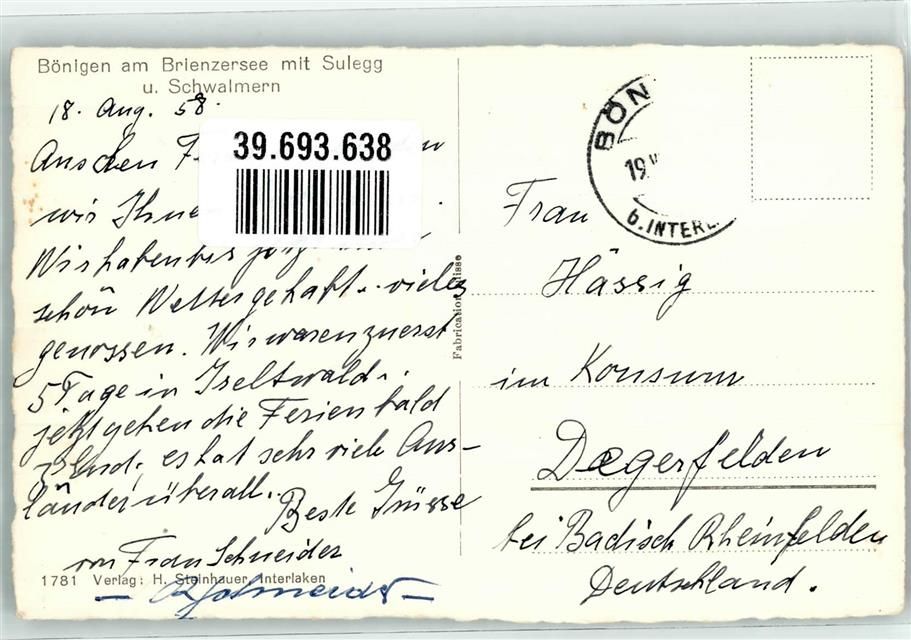 Bönigen am Brienzersee mit Sulegg
u. Schwalmern
18. Aug. 58.
39.693.638
Aus den
wir Ihne
Wir haben bis
schön Wetter gehabt u. vieles
genossen. Wir waren zuerst
5 Tage in Iseltwald.
jetzt gehen die Ferien bald
z. End. es hat sehr viele Aus-
länder überall.
Beste Grüsse
von Frau Schneider
1781 Verlag: H. Steinhauer, Interlaken
Schneider
Fabrication Suisse
BÖN
19.
b. INTERL
Frau
Hässig
im Konsum
Degerfelden
bei Badisch Rheinfelden
Deutschland.